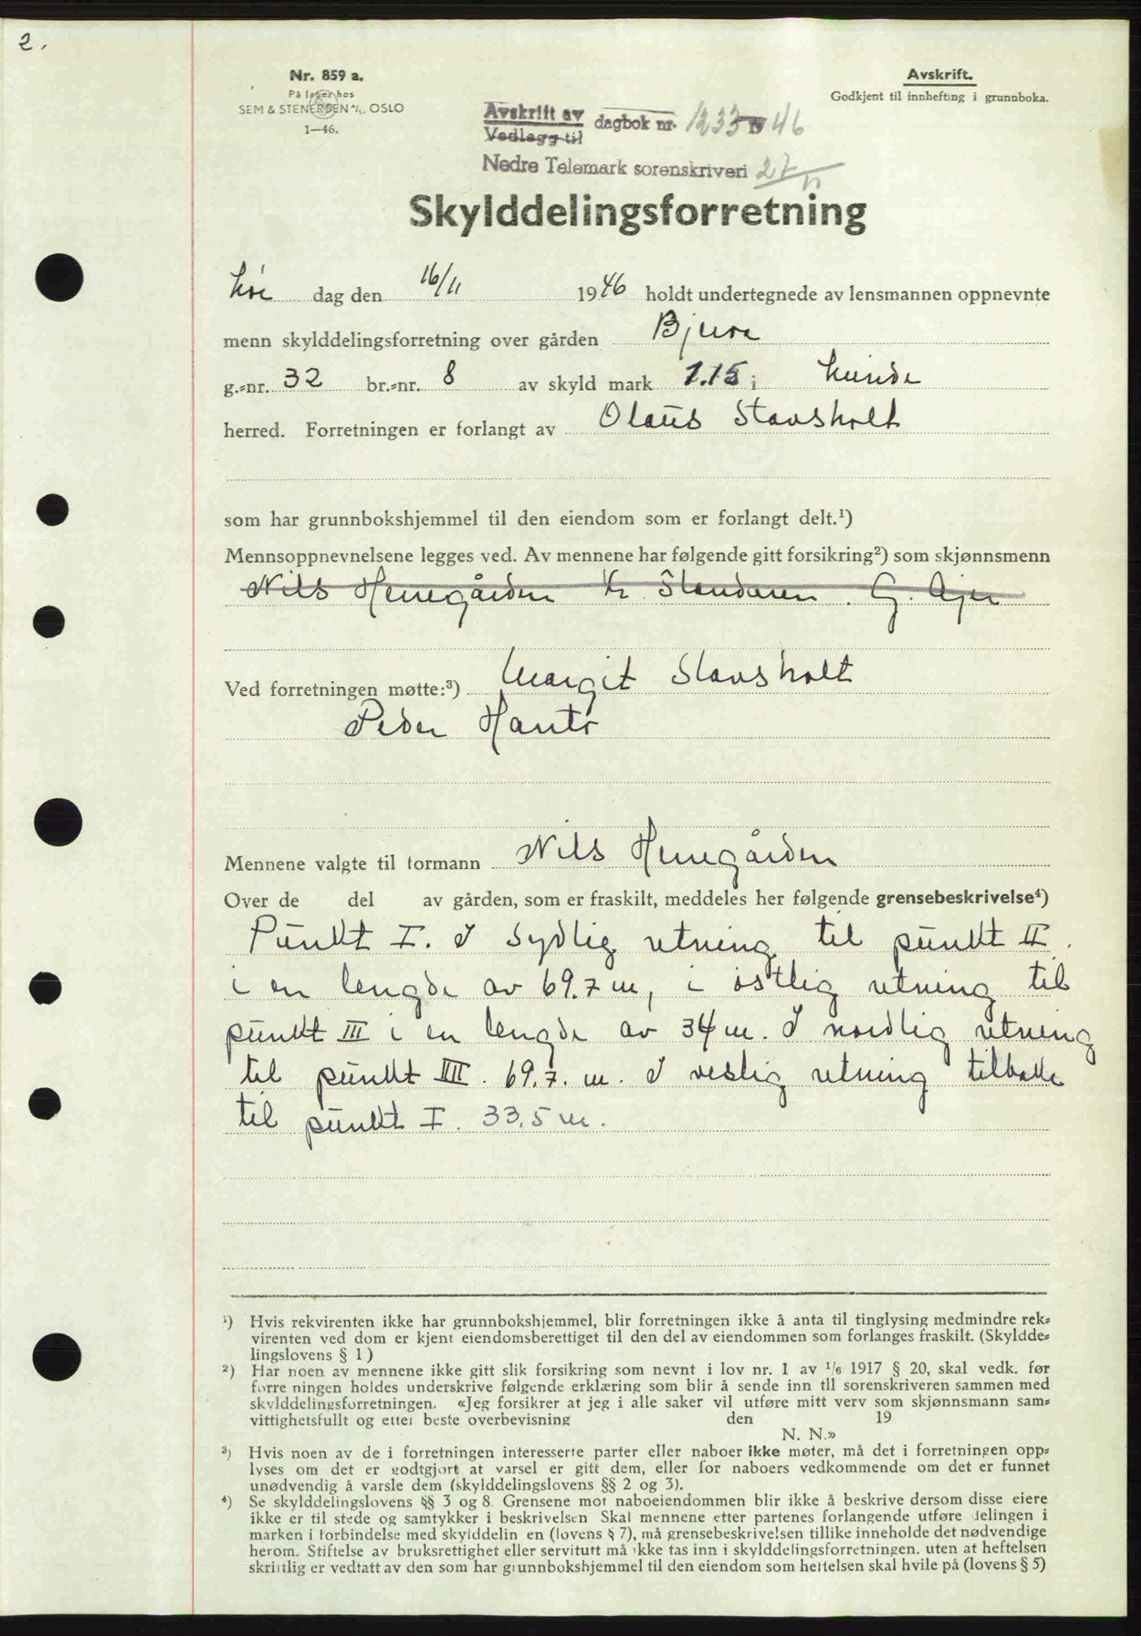 2.
Nr. 859 a.
På lager hos
SEM & STENERSEN A/S. OSLO
1—46.
Avskrift.
Godkjent til innhefting i grunnboka.
Avskrift av
Vedlegg til
dagbok nr. 1233 1946
Nedre Telemark sorenskriveri 27/11
Skylddelingsforretning
dag den 16/11 1946 holdt undertegnede av lensmannen oppnevnte
menn skylddelingsforretning over gården Bjura
g.-nr. 32 br.-nr. 8 av skyld mark 1.15 i Lunde
herred. Forretningen er forlangt av Olaus Stavsholt
som har grunnbokshjemmel til den eiendom som er forlangt delt.¹)
Mennsoppnevnelsene legges ved. Av mennene har følgende gitt forsikring²) som skjønnsmenn
Nils Henegården Kr. G.
Ved forretningen møtte:³) Margit Stavsholt
Peder
Mennene valgte til formann Nils Henegården
Over de del av gården, som er fraskilt, meddeles her følgende grensebeskrivelse⁴)
Punkt I. I sydlig retning til punkt II.
i en lengde av 69.7 m, i østlig retning til
punkt III i en lengde av 34 m. I nordlig retning
til punkt IIII. 69.7. m. I vestlig retning tilbake
til punkt I. 33.5 m.
¹) Hvis rekvirenten ikke har grunnbokshjemmel, blir forretningen ikke å anta til tinglysing medmindre rek-
virenten ved dom er kjent eiendomsberettiget til den del av eiendommen som forlanges fraskilt. (Skyldde-
lingslovens § 1)
²) Har noen av mennene ikke gitt slik forsikring som nevnt i lov nr. 1 av 1/6 1917 § 20, skal vedk. før
forre ningen holdes underskrive følgende erklæring som blir å sende inn til sorenskriveren sammen med
skylddelingsforretningen. «Jeg forsikrer at jeg i alle saker vil utføre mitt verv som skjønnsmann sam-
vittighetsfullt og etter beste overbevisning den 19
N. N.»
³) Hvis noen av de i forretningen interesserte parter eller naboer ikke møter, må det i forretningen opp-
lyses om det er godtgjort at varsel er gitt dem, eller for naboers vedkommende om det er funnet
unødvendig å varsle dem (skylddelingslovens §§ 2 og 3).
⁴) Se skylddelingslovens §§ 3 og 8. Grensene mot naboeiendommen blir ikke å beskrive dersom disse eiere
ikke er til stede og samtykker i beskrivelsen Skal mennene etter partenes forlangende utføre delingen i
marken i forbindelse med skylddelin en (lovens § 7), må grensebeskrivelsen tillike inneholde det nødvendige
herom. Stiftelse av bruksrettighet eller servitutt må ikke tas inn i skylddelingsforretningen. uten at heftelsen
skriftlig er vedtatt av den som har grunnbokshjemmel til den eiendom som heftelsen skal hvile på (lovens § 5)